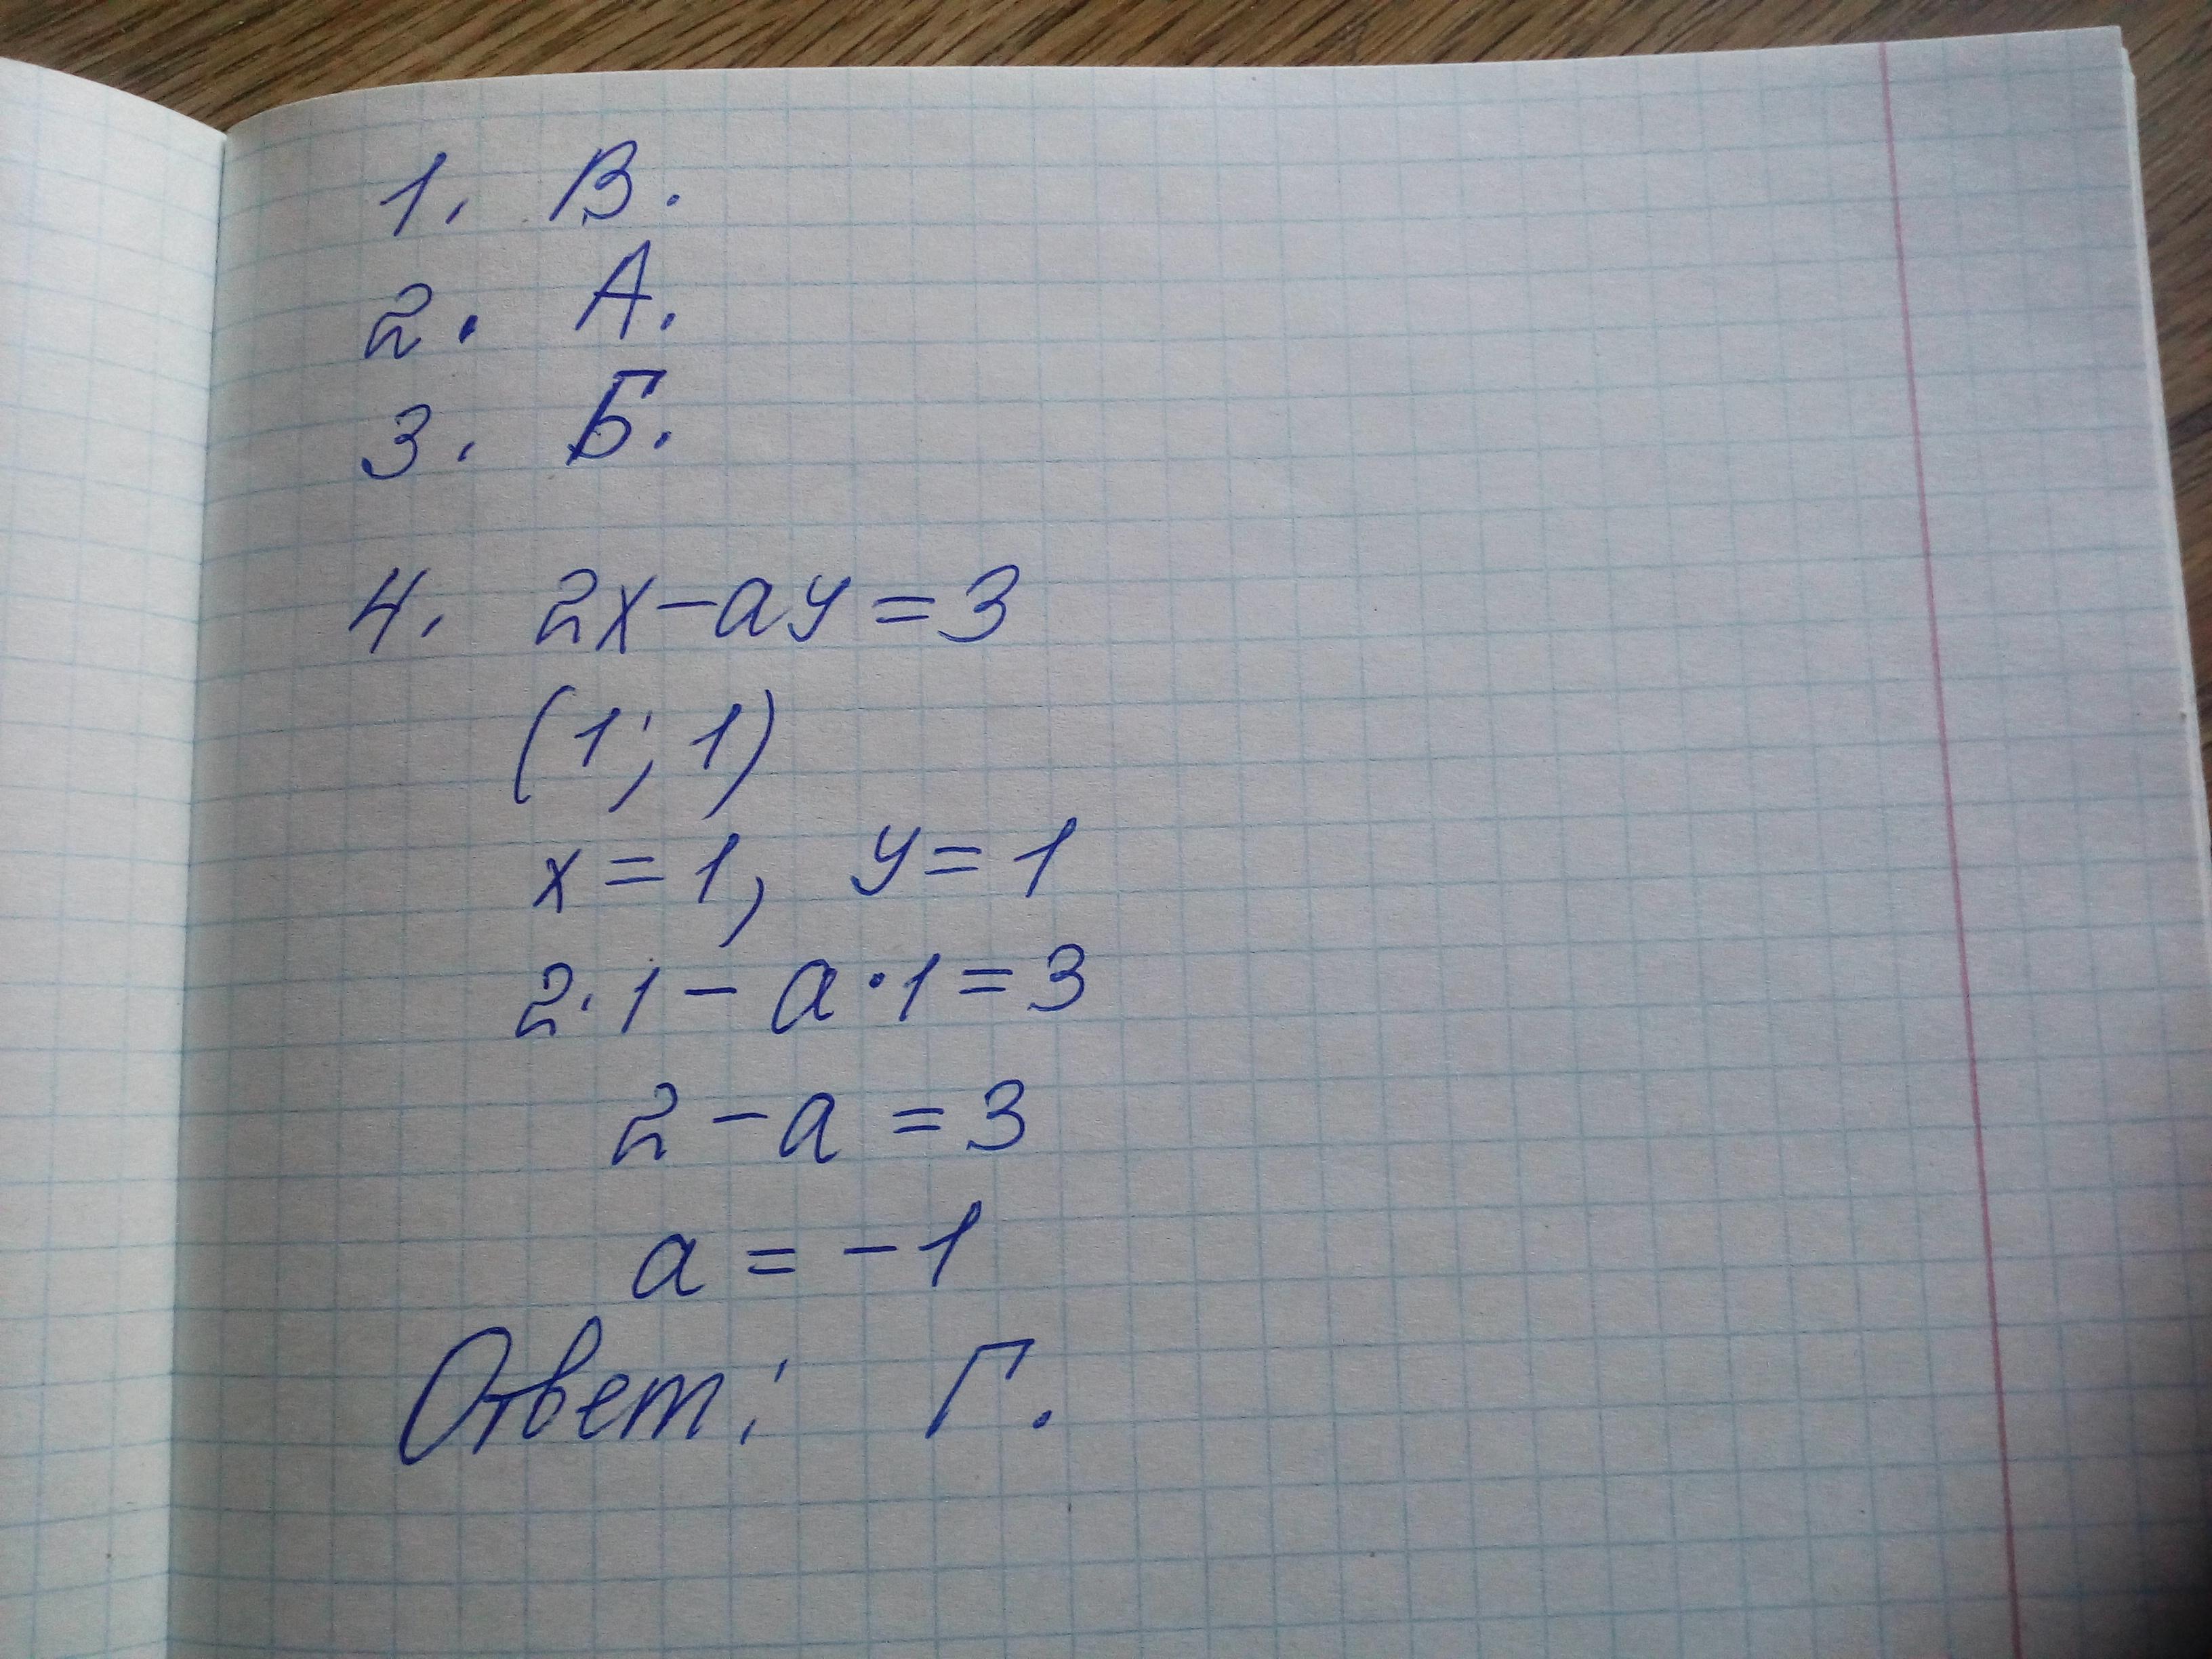 1. В.
2. А.
3. Б.
4. 2x-ay=3
(1; 1)
x=1, y=1
2·1-a·1=3
2-a=3
a=-1
Ответ: Г.